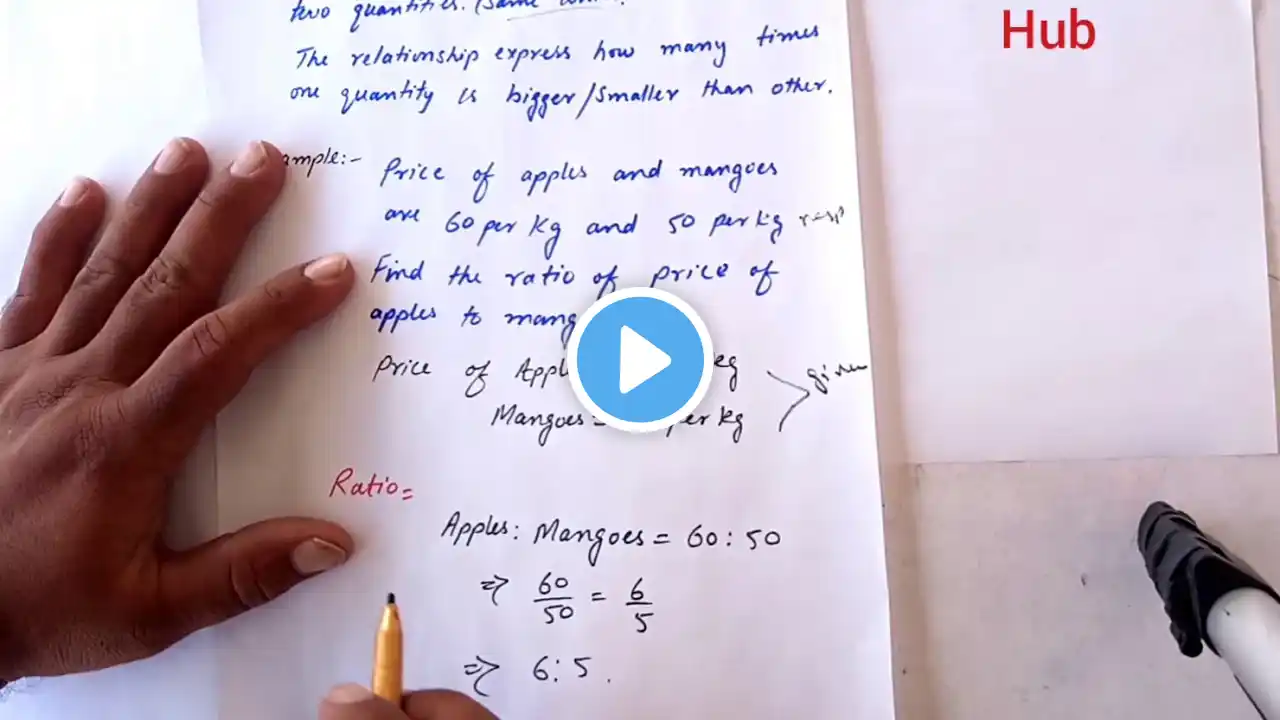 two quantities. (Same
Hub
The relationship express how many times
one quantity is bigger/smaller than other.
ample:- Price of apples and mangoes
are 60 per kg and 50 per kg resp
Find the ratio of price of
apples to mang
Price of Appl kg
Mangoes = per kg
given
Ratio =
Apples: Mangoes = 60:50
⇒ 60/50 = 6/5
⇒ 6:5.